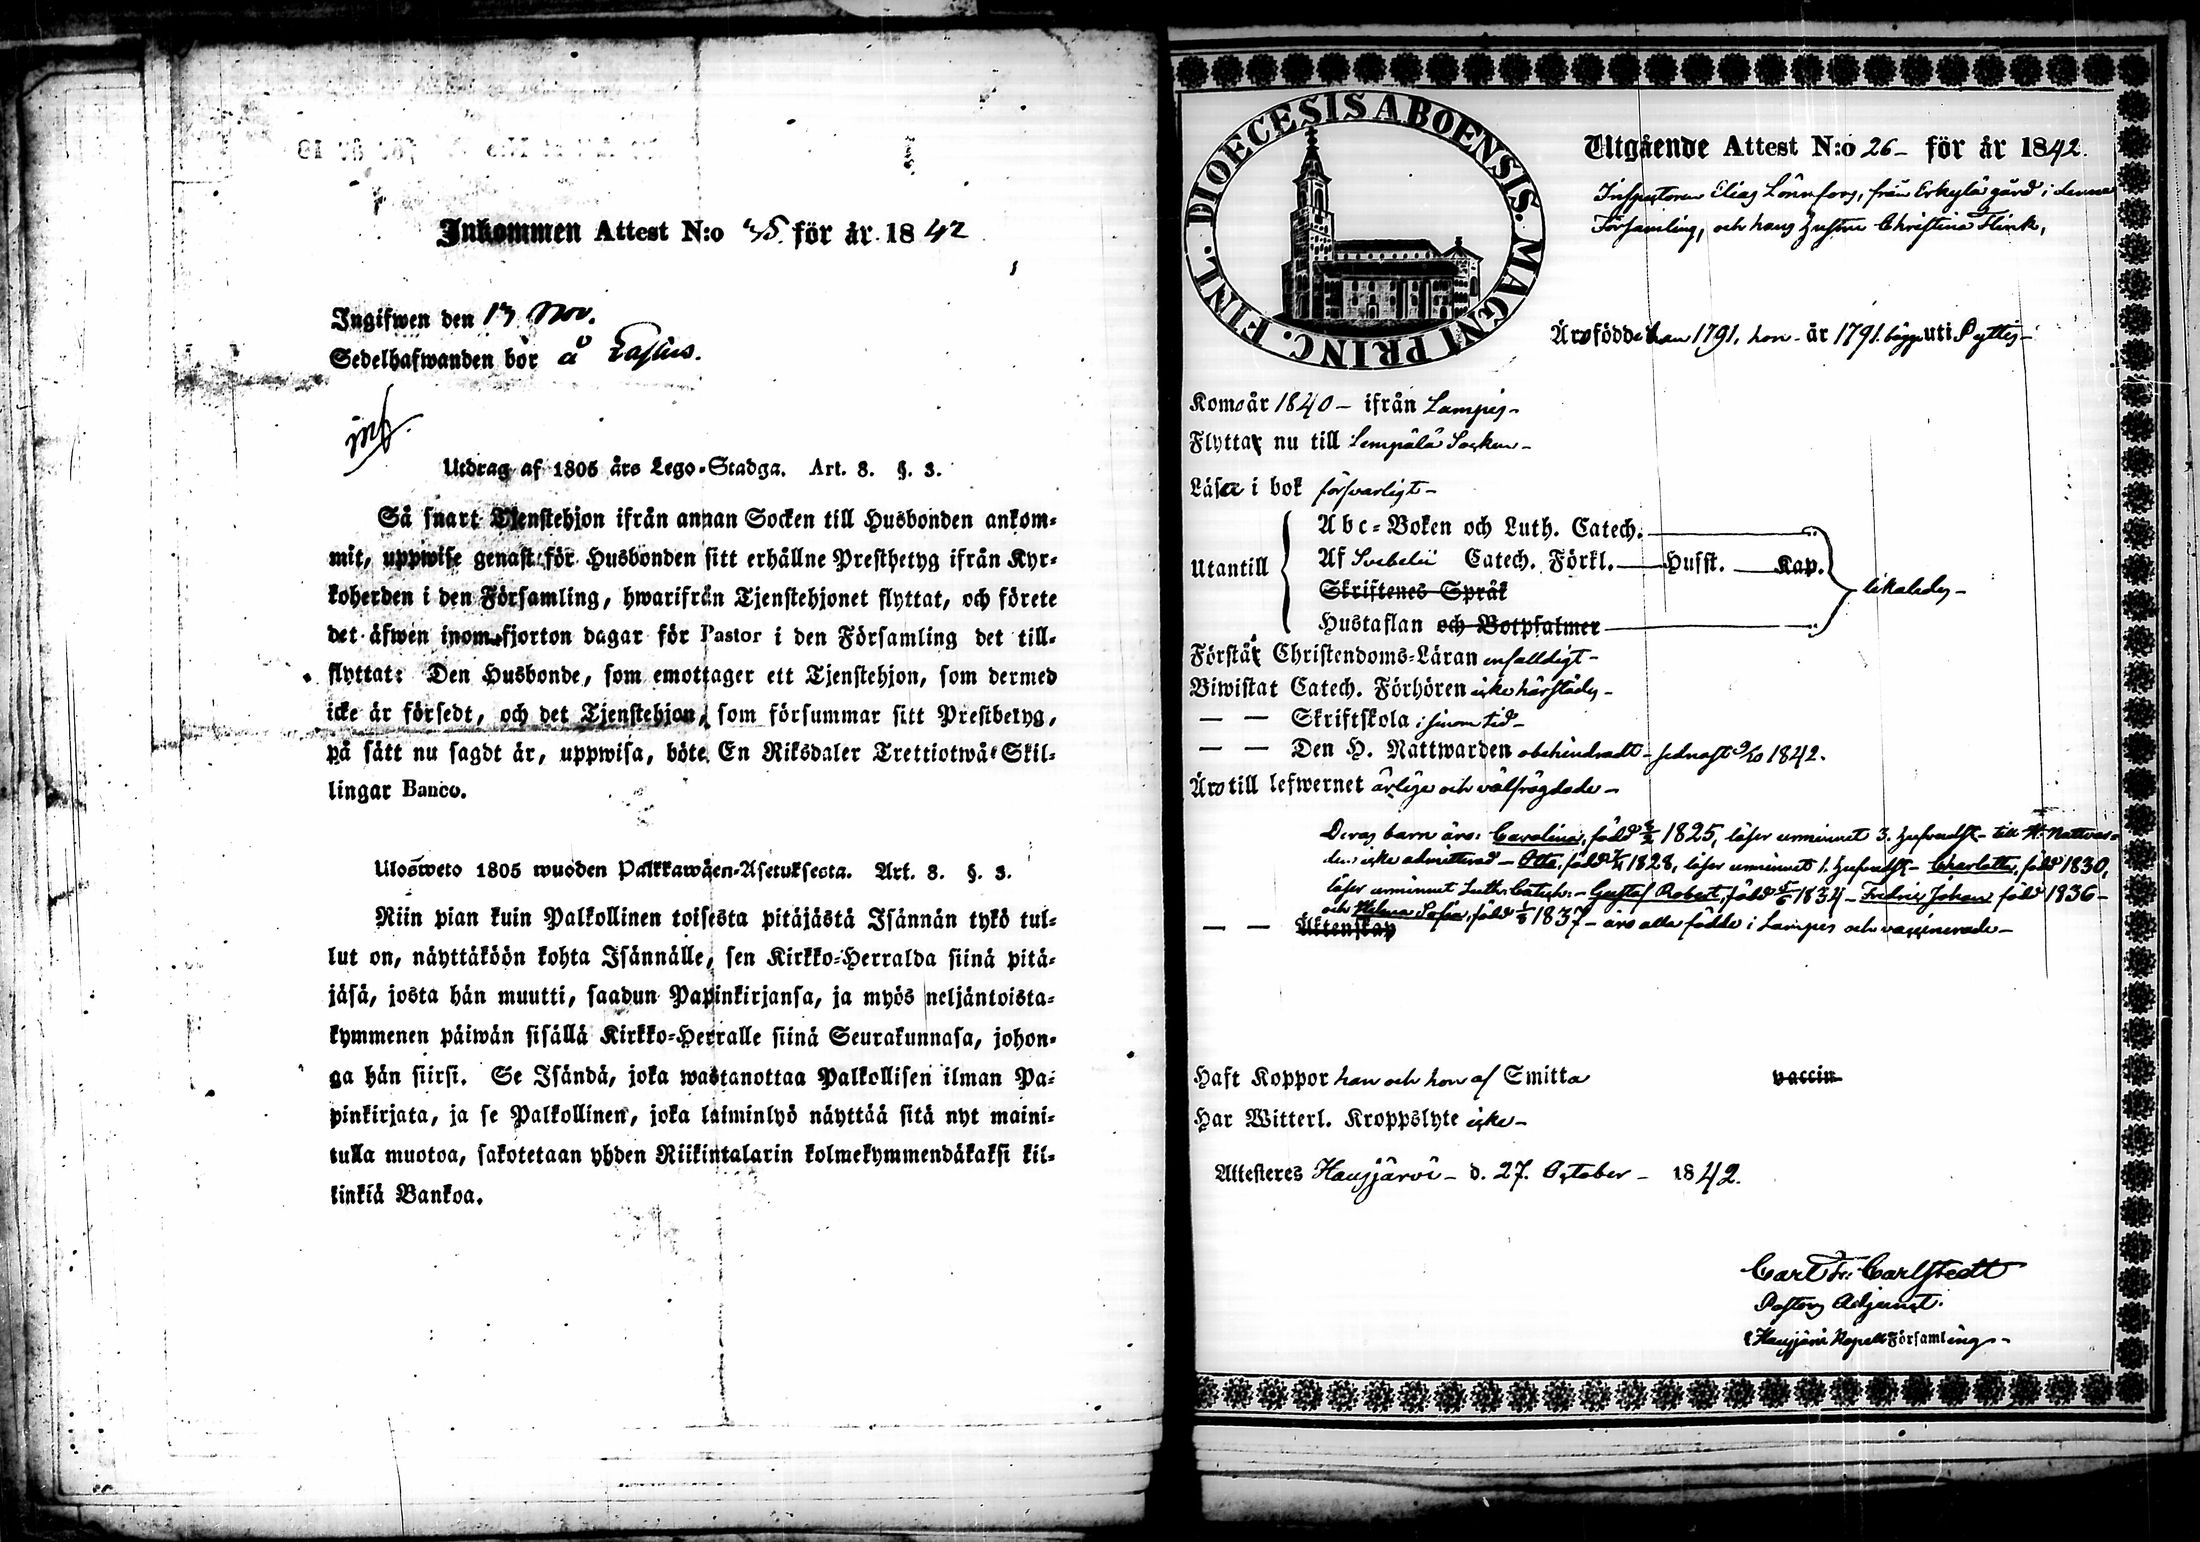 Inkommen Attest N:o 35. för år 1842
Ingifwen den 13 Nov.
Sedelhafwanden bor å Lastus.
Utdrag af 1805 års Lego-Stadga. Art. 8. §. 3.
Så snart Tjenstehjon ifrån annan Socken till Husbonden ankom-
mit, uppwise genast för Husbonden sitt erhållne Prestbetyg ifrån Kyr-
koherden i den Församling, hwarifrån Tjenstehjonet flyttat, och förete
det äfwen inom fjorton dagar för Pastor i den Församling det till-
flyttat: Den Husbonde, som emottager ett Tjenstehjon, som dermed
icke är försedt, och det Tjenstehjon, som försummar sitt Prestbetyg,
på sätt nu sagdt är, uppwisa, böte En Riksdaler Trettiotwå Skil-
lingar Banco.
Ulosweto 1805 wuoden Palkkawäen-Asetuksesta. Art. 8. §. 3.
Niin pian kuin Palkollinen toisesta pitäjästä Isännän tykö tul-
lut on, näyttäköön kohta Isännälle, sen Kirkko-Herralda siinä pitä-
jäsä, josta hän muutti, saadun Papinkirjansa, ja myös neljäntoista-
kymmenen päiwän sisällä Kirkko-Herralle siinä Seurakunnasa, johon-
ga hän siirsi. Se Isändä, joka wastanottaa Palkollisen ilman Pa-
pinkirjata, ja se Palkollinen, joka laiminlyö näyttää sitä nyt maini-
tulla muotoa, sakotetaan yhden Riikintalarin kolmekymmendäkaksi kil-
linkiä Bankoa.
DIOECESIS ABOENSIS. MAGNI PRINC. FINL.
Utgående Attest N:o 26 – för år 1842.
Inspectoren Elias Lönnfors, från Erkylä gård i denna
Församling, och hans hustru Christina Flink,
Äro födde han 1791, hon – år 1791. bägge uti Pyttis –
Komo år 1840 – ifrån Lampis –
Flytta nu till Lempälä Socken –
Läsa i bok försvarligt –
Utantill
Abc-Boken och Luth. Catech.
Af Svebelii Catech. Förkl. Husst. Kap.
Skriftenes Språk
Hustaflan och Botpsalmer
likaledes –
Förstå Christendoms-Läran enfalldigt –
Biwistat Catech. Förhören icke härstädes –
— — Skriftskola i sinom tid –
— — Den H. Nattwarden obehindradt – sednast 9/10 1842.
Äro till lefwernet ärlige och välfrägdade –
Deras barn äro: Carolina, född 1825, läser urminnet 3. hufvudst – till H. Nattvar-
den icke admitterad – Otto, född 1828, läser urminnet 1. hufvudst – Charlotta, född 1830,
läser urminnet Luth. Catech. – Gustaf Robert, född 1834 – Fredric Johan född 1836 –
och Helena Sofia, född 1837 – äro alla födde i Lampis och vaccinerade –
— — Äktenskap
Haft Koppor han och hon af Smitta vaccin
Har Witterl. Kroppslyte icke –
Attesteres Hausjärvi – d. 27. October – 1842.
Carl Fr: Carlstedt
Pastors Adjunct.
i Hausjärvi Kapell Församling –